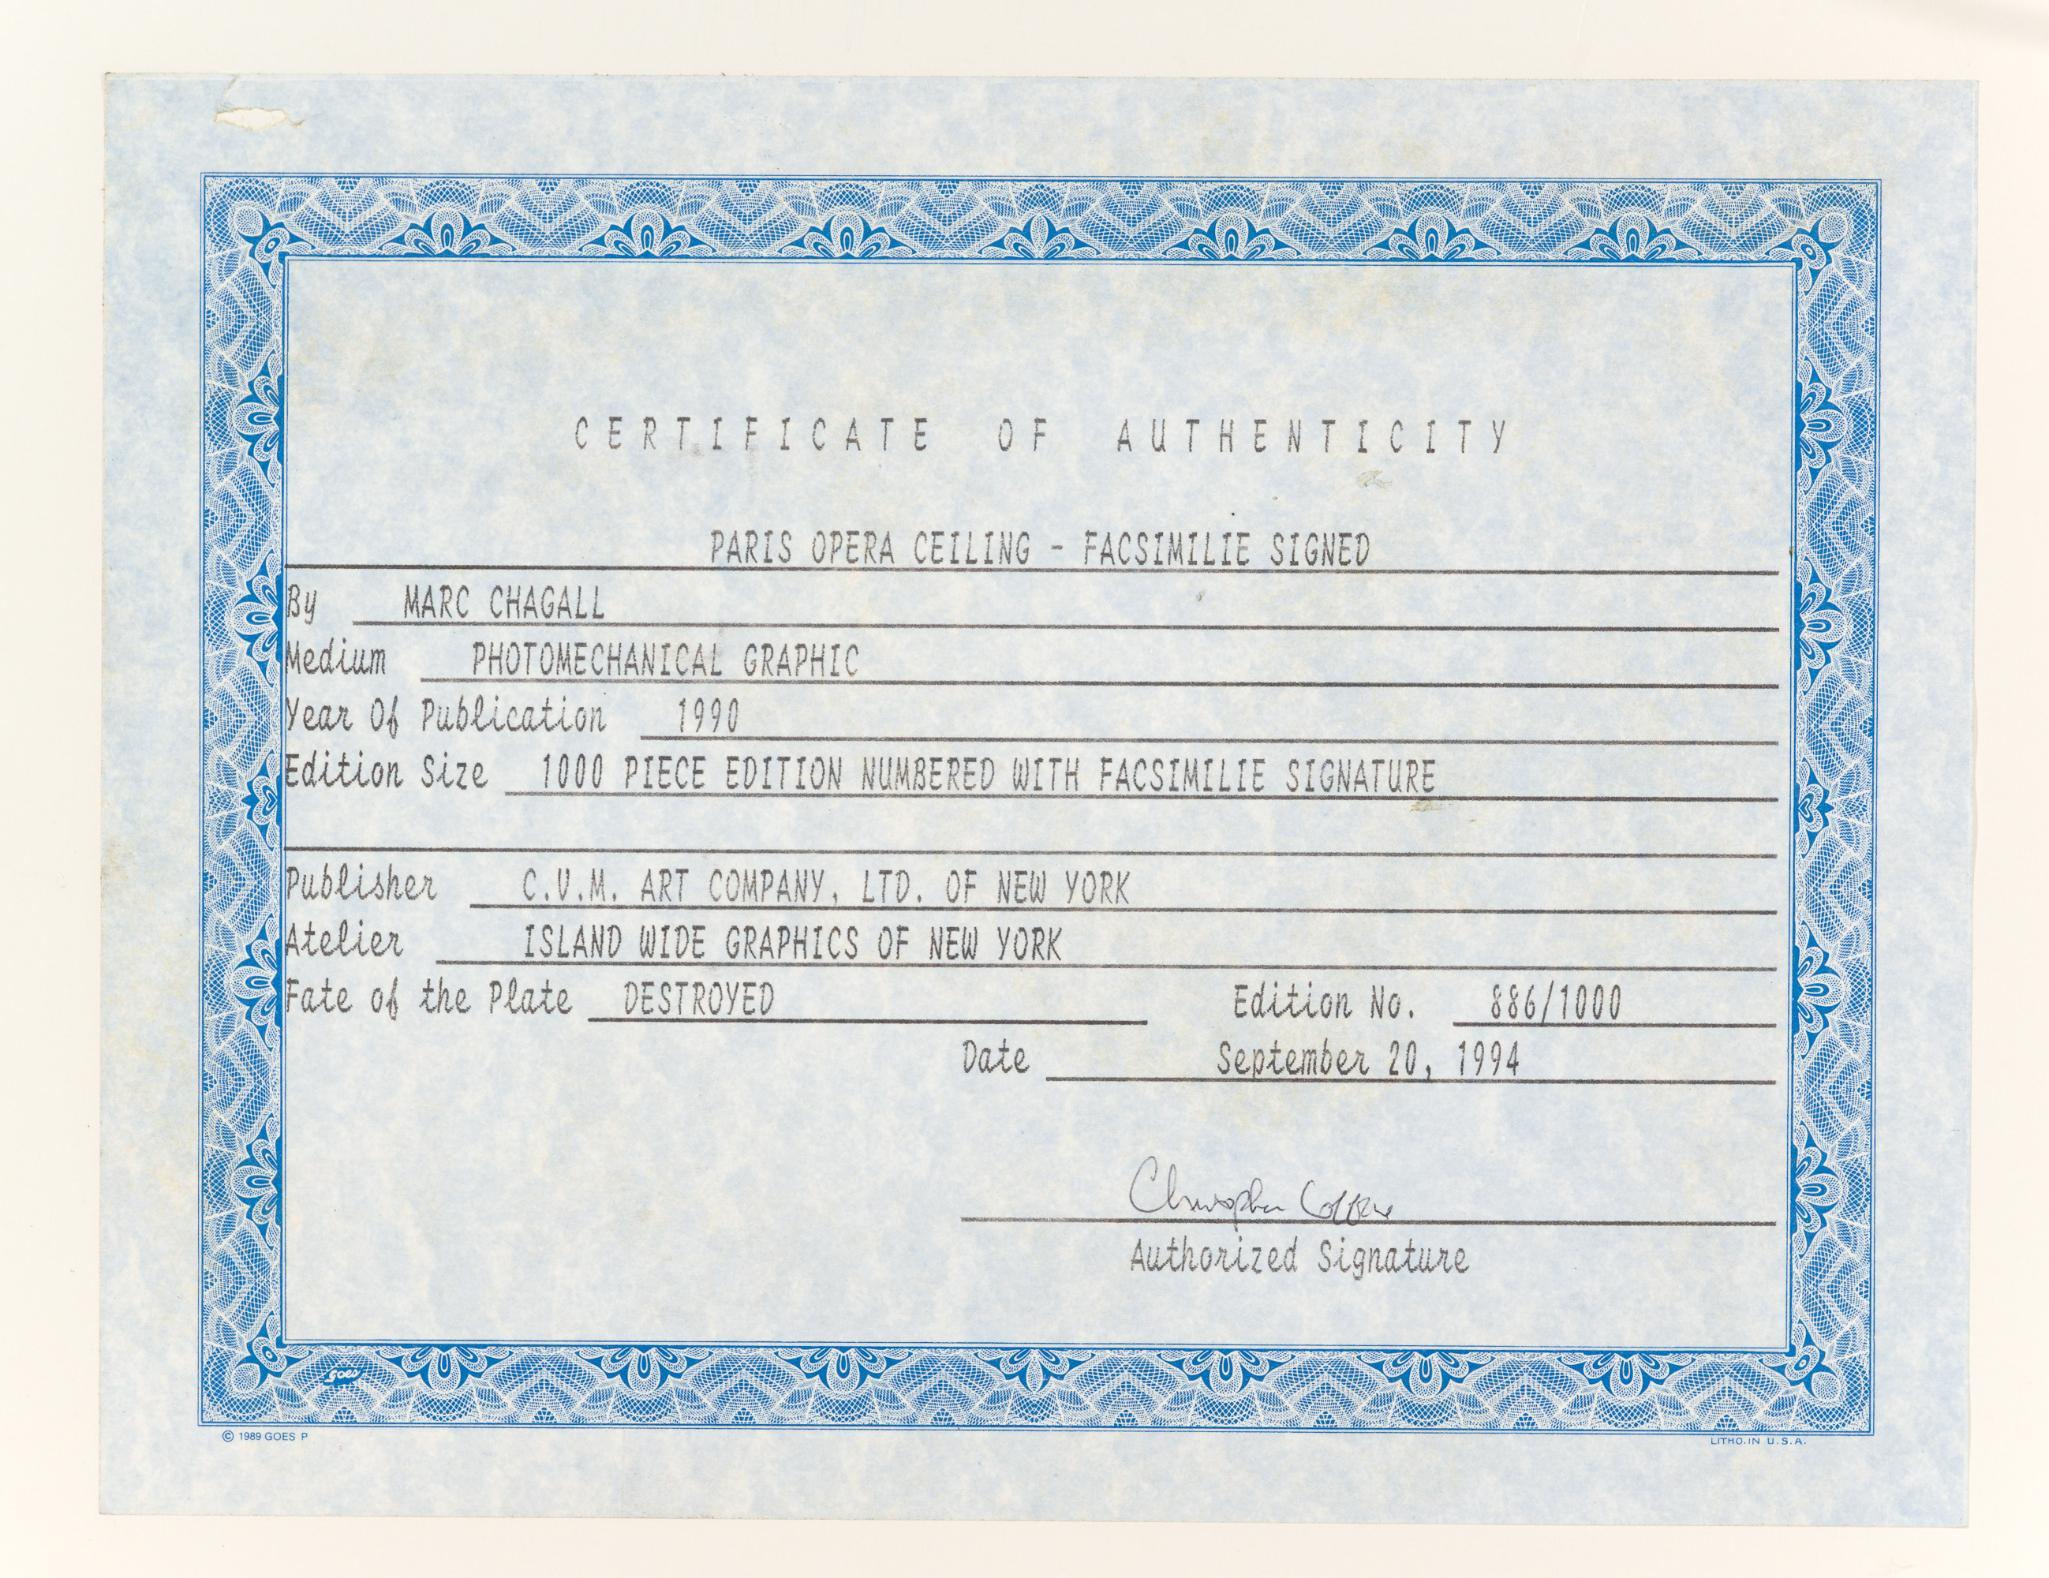 CERTIFICATE OF AUTHENTICITY
PARIS OPERA CEILING - FACSIMILIE SIGNED
By MARC CHAGALL
Medium PHOTOMECHANICAL GRAPHIC
Year Of Publication 1990
Edition Size 1000 PIECE EDITION NUMBERED WITH FACSIMILIE SIGNATURE
Publisher C.V.M. ART COMPANY, LTD. OF NEW YORK
Atelier ISLAND WIDE GRAPHICS OF NEW YORK
Fate of the Plate DESTROYED Edition No. 886/1000
Date September 20, 1994
Christopher
Authorized Signature
goes
© 1989 GOES P
LITHO. IN U.S.A.